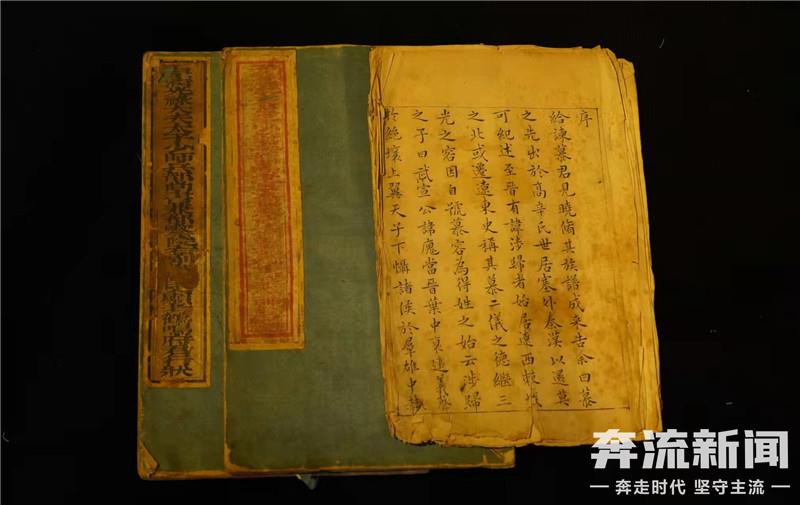 序
給諫慕君見曉脩其族譜成来告余曰慕
之先出於高辛氏世居塞外秦漢以還莫
可紀述至晉有諱涉歸者始居遼西棘城
之北或遷遼東史稱其慕二儀之德繼三
光之容因自號慕容為得姓之始云涉歸
之子曰武宣公諱廆當晉葉中衰建義
於絕壤上翼天子下懾諸侯於羣雄中
大夫太子 師兵部尚書 都察院 府君行狀
奔流新闻
奔走时代 坚守主流